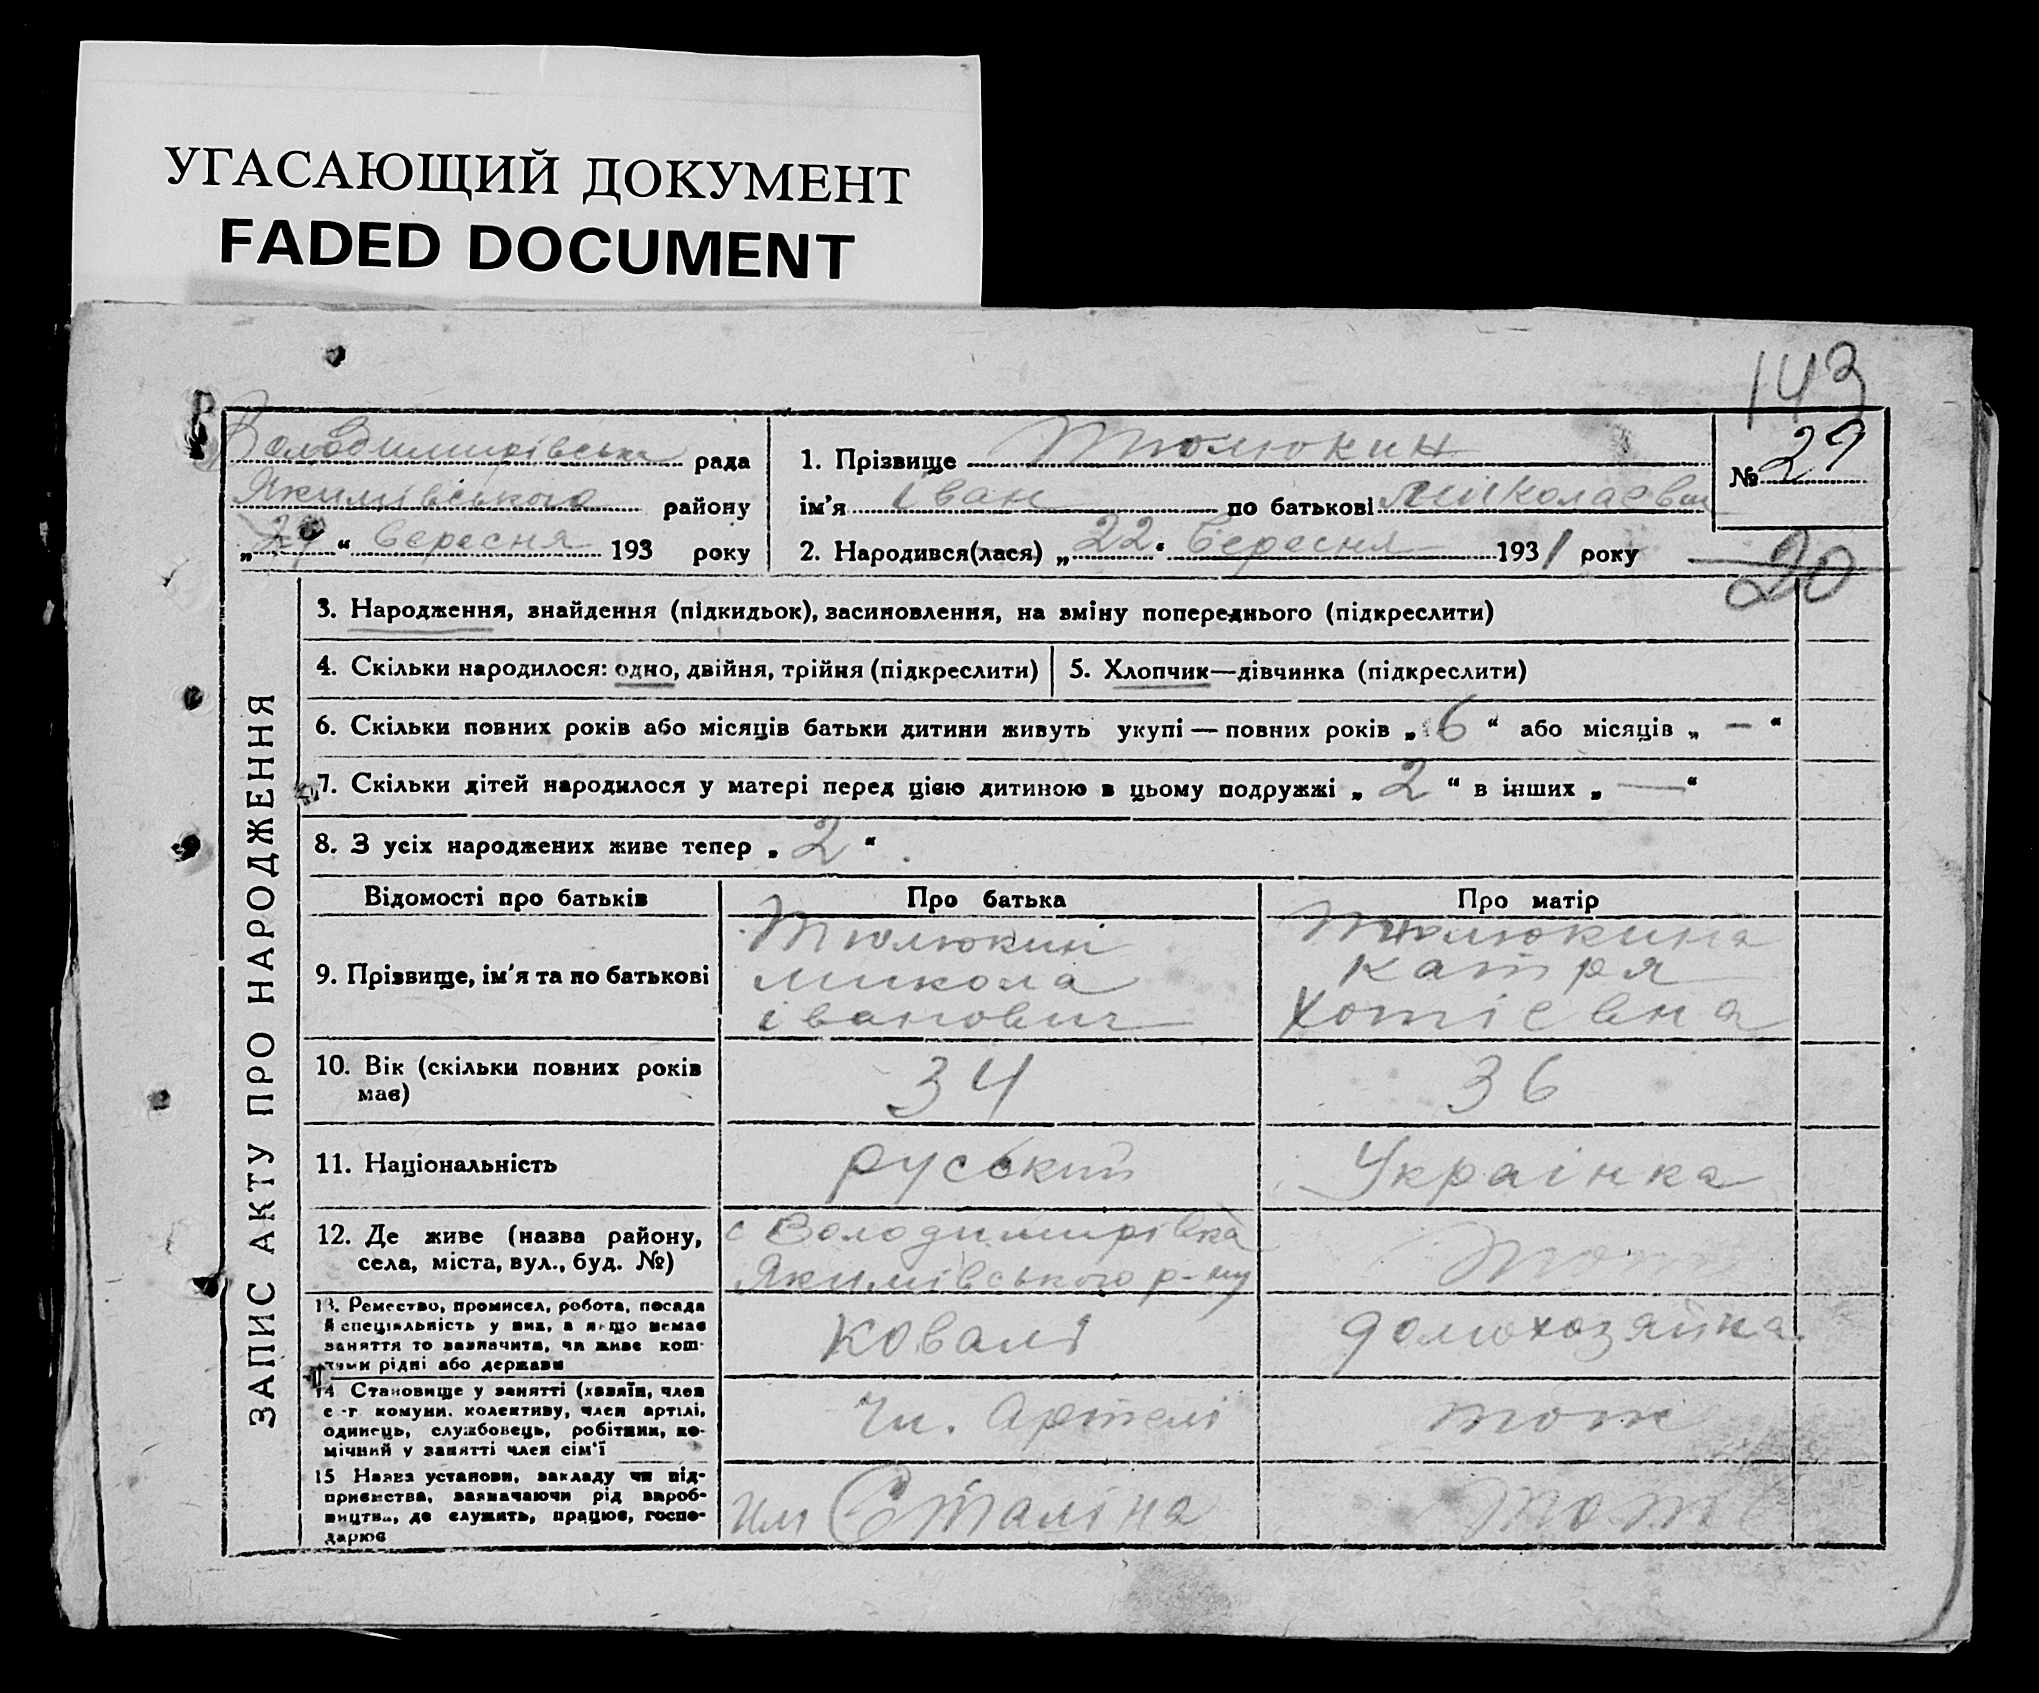 УГАСАЮЩИЙ ДОКУМЕНТ
FADED DOCUMENT
143
Володимирівська рада
Якимівського району
„ “ вересня 193 року
1. Прізвище Тюлюкин
ім’я іван по батькові Миколаєвич
2. Народився(лася) „22“ Вересня 1931 року
№ 27
20
ЗАПИС АКТУ ПРО НАРОДЖЕННЯ
3. Народження, знайдення (підкидьок), засиновлення, на зміну попереднього (підкреслити)
4. Скільки народилося: одно, двійня, трійня (підкреслити)
5. Хлопчик—дівчинка (підкреслити)
6. Скільки повних років або місяців батьки дитини живуть укупі — повних років „6“ або місяців „—“
7. Скільки дітей народилося у матері перед цією дитиною в цьому подружжі „2“ в інших „—“
8. З усіх народжених живе тепер „2“
Відомості про батьків
Про батька
Про матір
9. Прізвище, ім’я та по батькові
Тюлюкині
Микола
іванович
Тюлюкина
Катря
Хотієвна
10. Вік (скільки повних років
має)
34
36
11. Національність
руський
Украінка
12. Де живе (назва району,
села, міста, вул., буд. №)
с Володимирівка
Якимівського р-ну
тож
13. Ремество, промисел, робота, посада
й спеціяльність у них, а якщо немає
заняття то зазначити, чи живе кош-
тами рідні або держави
Ковалі
домохозяйка
14 Становище у занятті (хазяїн, член
с-г. комуни, колективу, член артілі,
одинець, службовець, робітник, по-
мічний у занятті член сім’ї
Чл. Артелі
тож
15 Назва установи, закладу чи під-
приємства, зазначаючи рід вироб-
ництва, де служить, працює, госпо-
дарює
Сталіна
тож